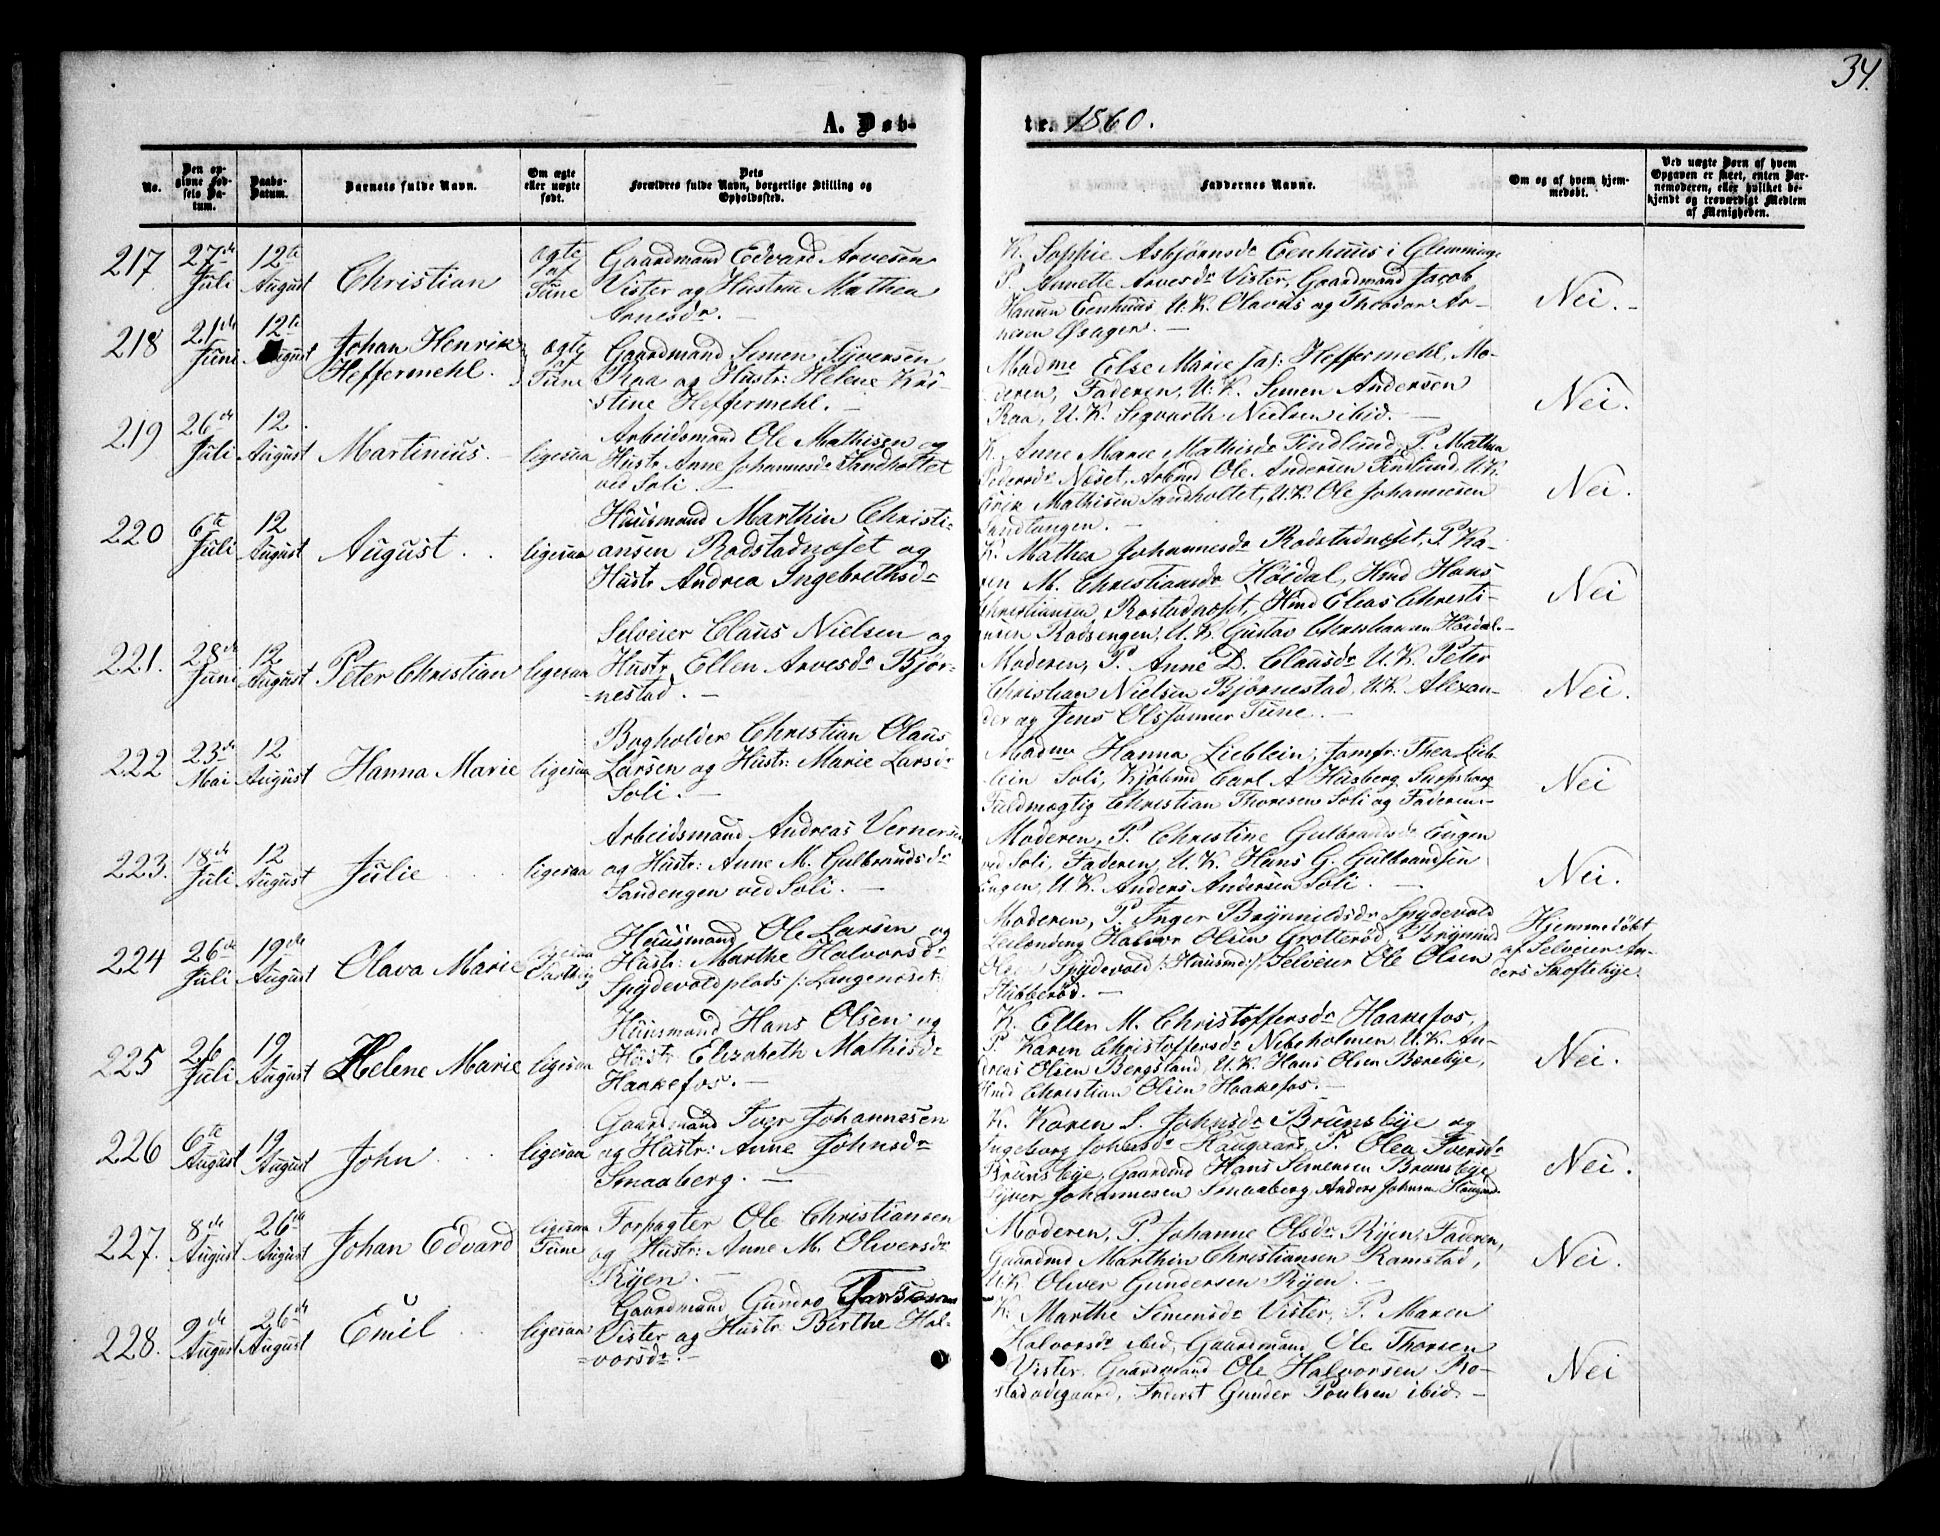 34.
A. Døb-
te. 1860.
No.
Den opgivne Fødsels Datum.
Daabs-Datum.
Barnets fulde Navn.
Om ægte eller uægte født.
Dets Forældres fulde Navn, borgerlige Stilling og Opholdssted.
Faddernes Navne.
Om og af hvem hjemmedøbt.
Ved uægte Børn af hvem Opgaven er skeet, enten Barnemoderen, eller hvilket bekjendt og troværdigt Medlem af Menigheden.
217 27de Juli 12te August Christian ægte af Tune
Gaardmand Edvard Arvesen
Vister og Hustru Mathea
Arnesdr. —
K. Sophie Asbjørnsdr Eenhuus i Glemminge
P. Annette Arvesdr Vister, Gaardmand Jacob
Hansen Eenhuus U.K. Olavus og Theodor Ar-
nesen Øsager. —
Nei. -
218 21de Juni 12te August Johan Henrik Heffermehl. ægte af Tune
Gaardmand Simen Syversen
Raa og Hustr: Helene Kri-
stine Heffermehl. —
Madme Else Marie Heffermehl, Mo-
deren, Faderen, U.K. Simen Andersen
Raa, U.K. Sigvarth Nielsen ibid. —
Nei.
219 26de Juli 12. August Martinius. ligesaa
Arbeidsmand Ole Mathisen og
Hustr Anne Johannesdr Sandholtet
ved Soli. —
K. Anne Marie Mathisdr Tindlund, P. Mathea
Pedersdr Næset, Arbmd Ole Andersen Tindlund, U.K.
Erik Mathisen Sandholtet, U.K. Ole Johannesen
Sandtangen. —
Nei.
220 6te Juli 12 August August. ligesaa
Huusmand Marthin Christi-
ansen Rodstadnæset og
Hustr Andrea Ingebrethsdr
K. Mathea Johannesdr Rodstadnæset, P. Ka-
ren M. Christiansdr Høidal, Hmd Hans
Christiansen Rostadnæset, Hmd Elias Christi-
ansen Rodsengen, U.K. Gustav Christiansen Høidal. —
Nei
221. 28de Juni 12 August Peter Christian ligesaa
Selveier Claus Nielsen og
Hustr Ellen Arvesdr Bjør-
nestad. —
Moderen, P. Anne D. Clausdr U.K. Peter
Christian Nielsen Bjørnestad, U.K. Alexan-
der og Jens Olssønner Tune. —
Nei.
222 23de Mai 12 August Hanna Marie ligesaa
Bogholder Christian Olaus
Larsen og Hustr: Marie Larsdr
Soli. —
Madme Hanna Lieblein, Jomfr: Thea Lieb-
lein Soli, Kjøbmd Carl A Husberg Sarpsborg
Fuldmægtig Christian Thoresen Soli og Faderen. —
Nei
223. 18de Juli 12 August Julie ligesaa
Arbeidsmand Andreas Vernersen
og Hustr: Anne M. Gulbrandsdr
Sandengen ved Soli. —
Moderen, P. Christine Gulbrandsdr Engen
ved Soli, Faderen, U.K. Hans G. Gulbrandsen
Engen, U.K. Anders Andersen Soli. —
Nei.
224 26de Juli 19de August Olava Marie ligesaa Varteig
Huusmand Ole Larsen og
Hustr: Marthe Halvorsdr
Spydevoldplads /: Langenæset
Moderen, P. Inger Brynnildsdr Spydevold
Leilending Halvor Olsen Grotterød, Brynnild
Olsen Spydevold /: Huusmd :/ Selveier Ole Olsen
Hubberød. —
Hjemmedøbt
af Selveier An-
ders Snoftebye
225 26 Juli 19 August Helene Marie ligesaa
Huusmand Hans Olsen og
Hustr Elizabeth Mathisdr
Haakefos. —
K. Ellen M. Christoffersdr Haakefos,
P. Karen Christoffersdr Nibeholmen U.K. An-
dreas Olsen Bergsland, U.K. Hans Olsen Bærebye,
Hmd Christian Olsen Haakefos. —
Nei.
226 6te August 19 August John ligesaa
Gaardmand Iver Johannesen
og Hustr: Anne Johnsdr
Smaaberg. —
K. Karen S. Johnsdr Brunsbye og
Ingeborg Johnsdr Haugaard, P. Olea Iversdr
Brunsbye, Gaardmd Hans Simensen Brunsbye
Syver Johannesen Smaaberg, Anders Johnsen Haugaard.
Nei.
227. 8de August 26de August Johan Edvard ligesaa Tune
Forpagter Ole Christiansen
og Hustr: Anne M. Oliversdr
Ryen. —
Moderen, P. Johanne Olsdr Ryen, Faderen,
Gaardmd Marthin Christiansen Ramstad,
U.K. Oliver Gundersen Ryen. —
Nei.
228. 9de August 26de August Emil ligesaa
Gaardmand Gundro
Vister og Hustr Birthe Hal-
vorsdr. —
K. Marthe Simensdr Vister, P. Maren
Halvorsdr ibid, Gaardmand Ole Thorsen
Vister, Gaardmand Ole Halvorsen Ro-
stadødegaard, Gunder Poulsen ibid. —
Nei